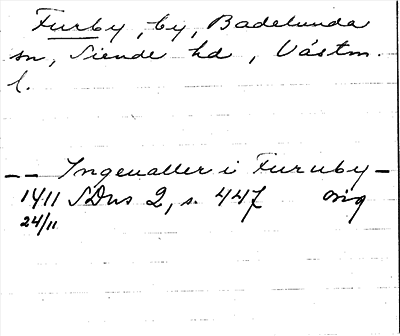 Furby, by, Badelunda
sn, Siende hd, Västm.
l.
-- Ingeualler i Furuby -
1411 SDns 2, s. 447 orig
24/11